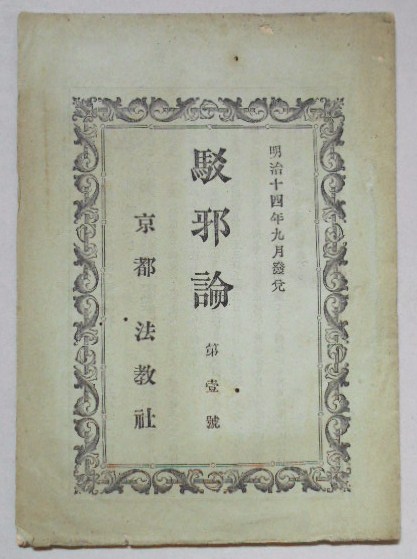 明治十四年九月發兌
駁邪論 第壹號
京都 法教社